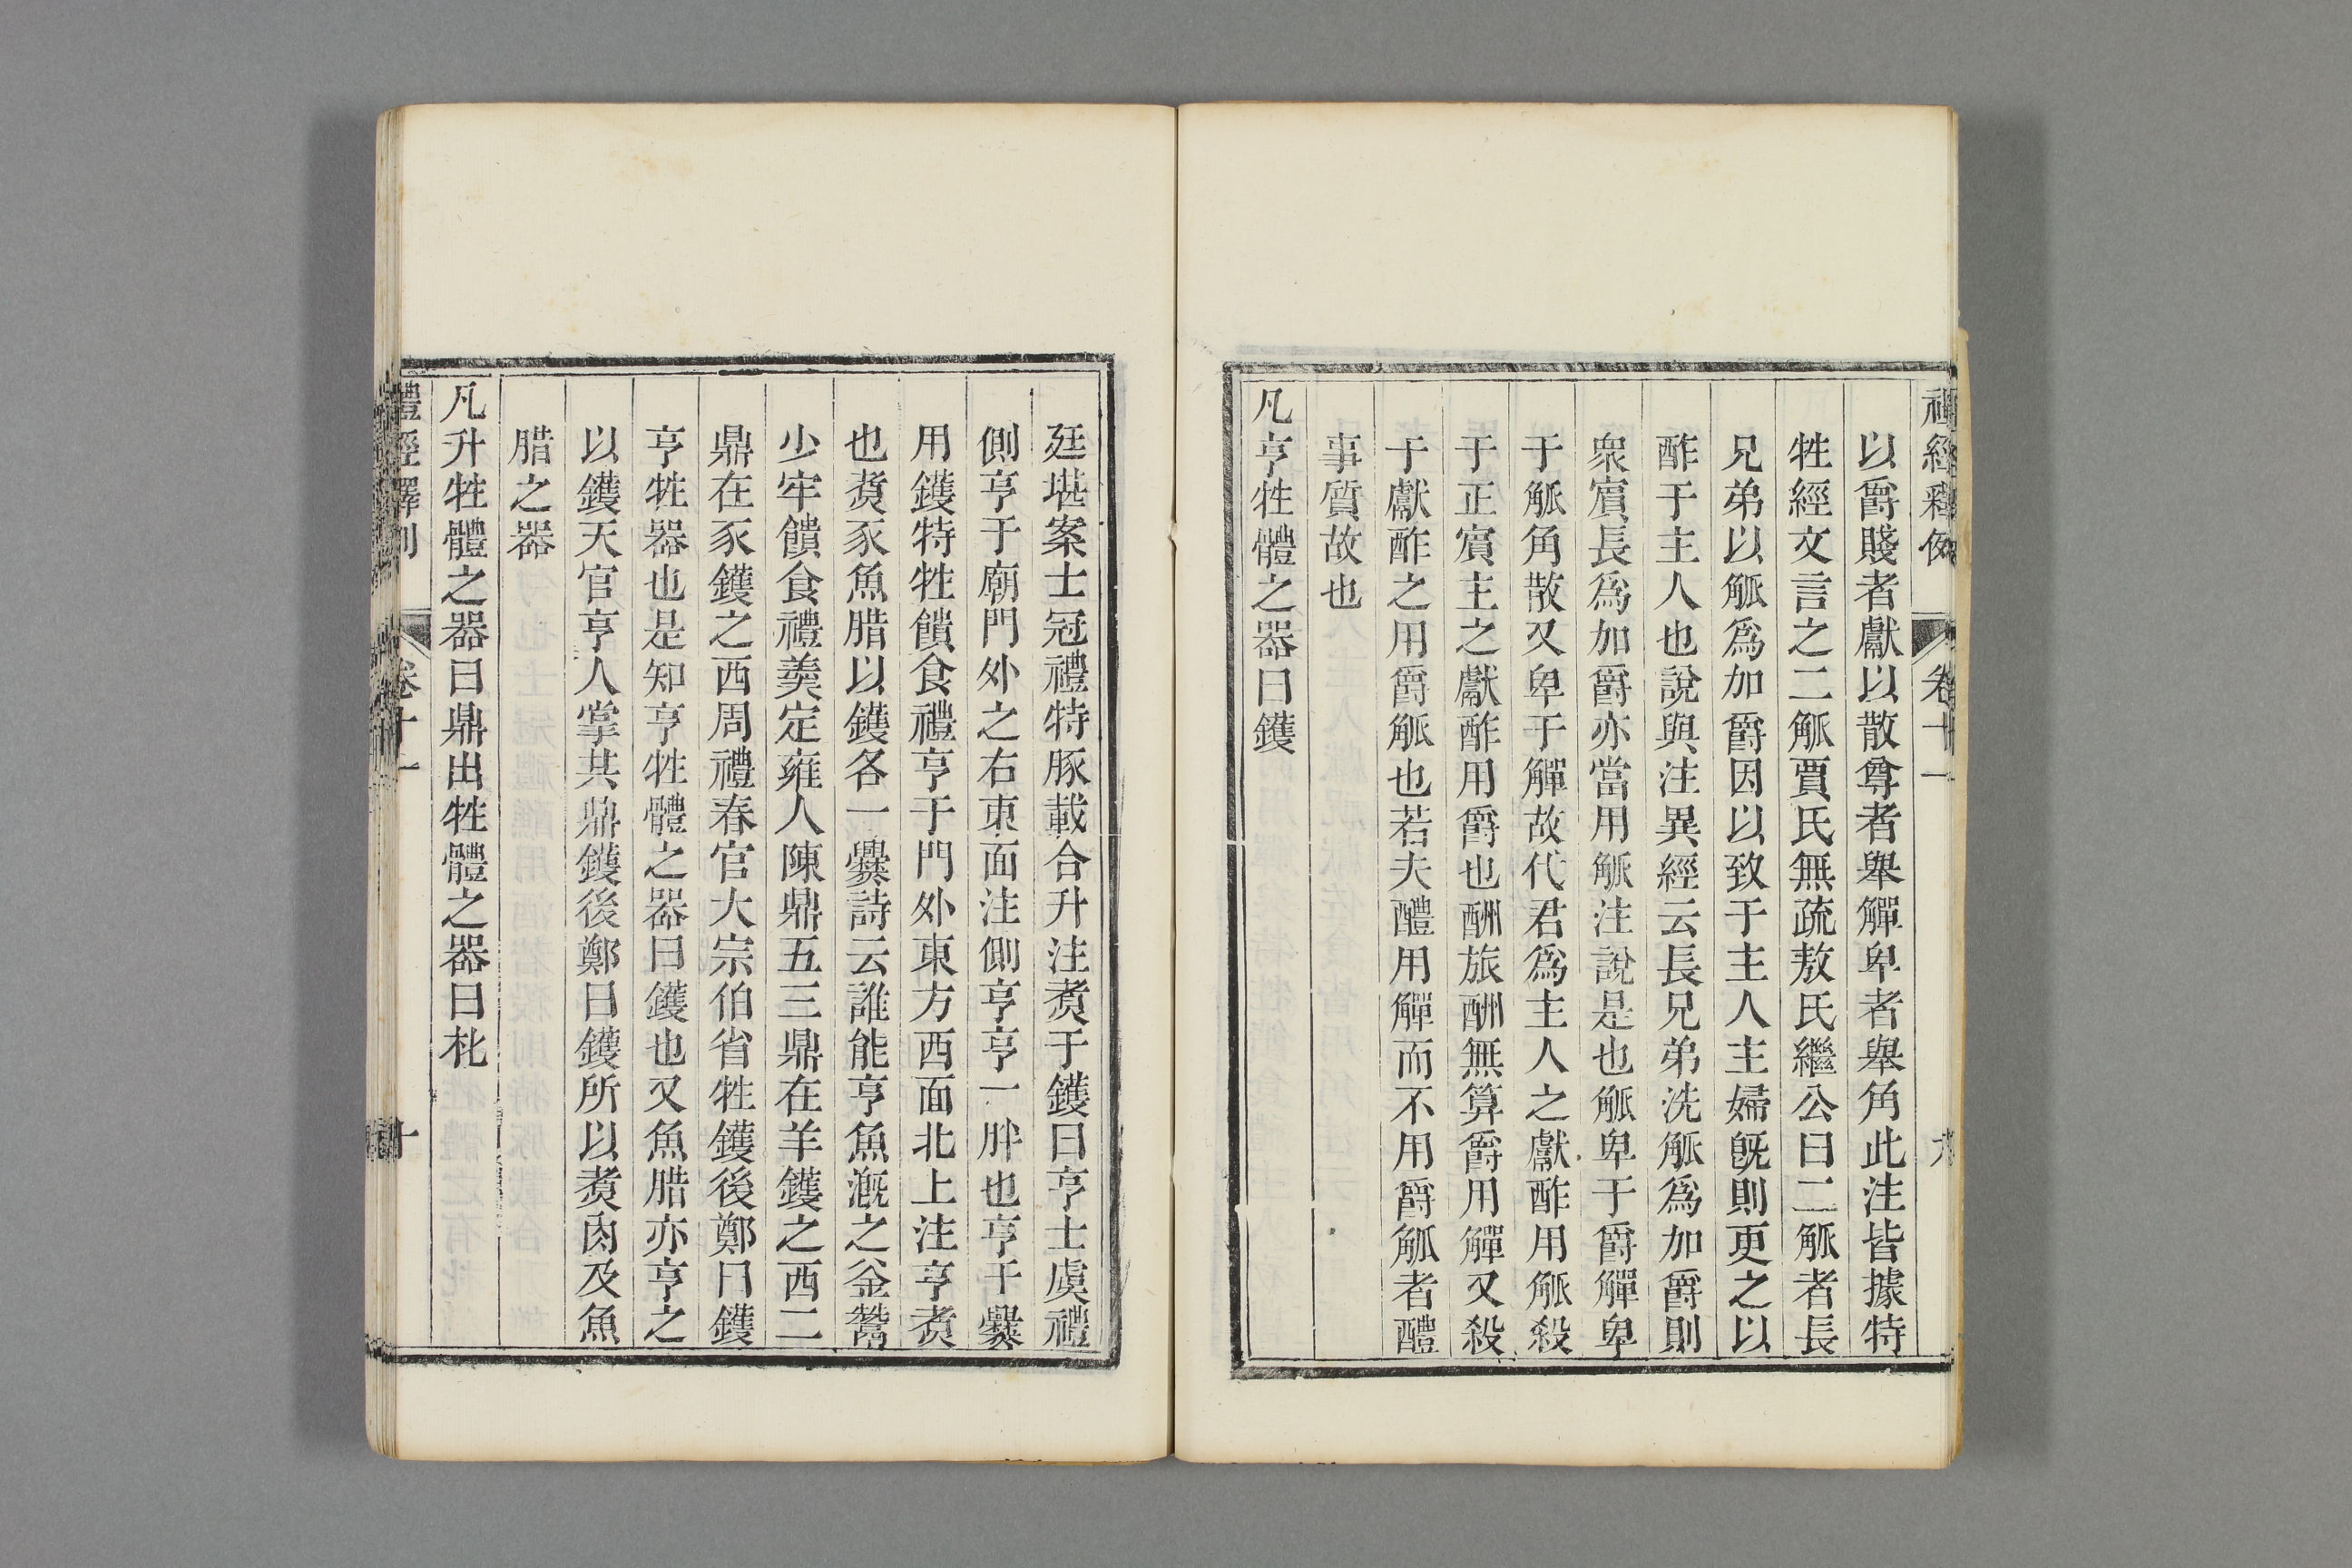 禮經釋例 卷十一 九
以爵賤者獻以散尊者舉觶卑者舉角此注皆據特
牲經文言之二觚賈氏無疏敖氏繼公曰二觚者長
兄弟以觚爲加爵因以致于主人主婦旣則更之以
酢于主人也說與注異經云長兄弟洗觚爲加爵則
衆賔長爲加爵亦當用觚注說是也觚卑于爵觶卑
于觚角散又卑于觶故代君爲主人之獻酢用觚殺
于正賔主之獻酢用爵也酬旅酬無算爵用觶又殺
于獻酢之用爵觚也若夫醴用觶而不用爵觚者醴
事質故也
凡亨牲體之器曰鑊
廷堪案士冠禮特豚載合升注煑于鑊曰亨士虞禮
側亨于廟門外之右東面注側亨亨一胖也亨于爨
用鑊特牲饋食禮亨于門外東方西面北上注亨煑
也煑豕魚腊以鑊各一爨詩云誰能亨魚漑之釜鬵
少牢饋食禮羹定雍人陳鼎五三鼎在羊鑊之西二
鼎在豕鑊之西周禮春官大宗伯省牲鑊後鄭曰鑊
亨牲器也是知亨牲體之器曰鑊也又魚腊亦亨之
以鑊天官亨人掌共鼎鑊後鄭曰鑊所以煑肉及魚
腊之器
凡升牲體之器曰鼎出牲體之器曰朼
禮經釋例 卷十一 十